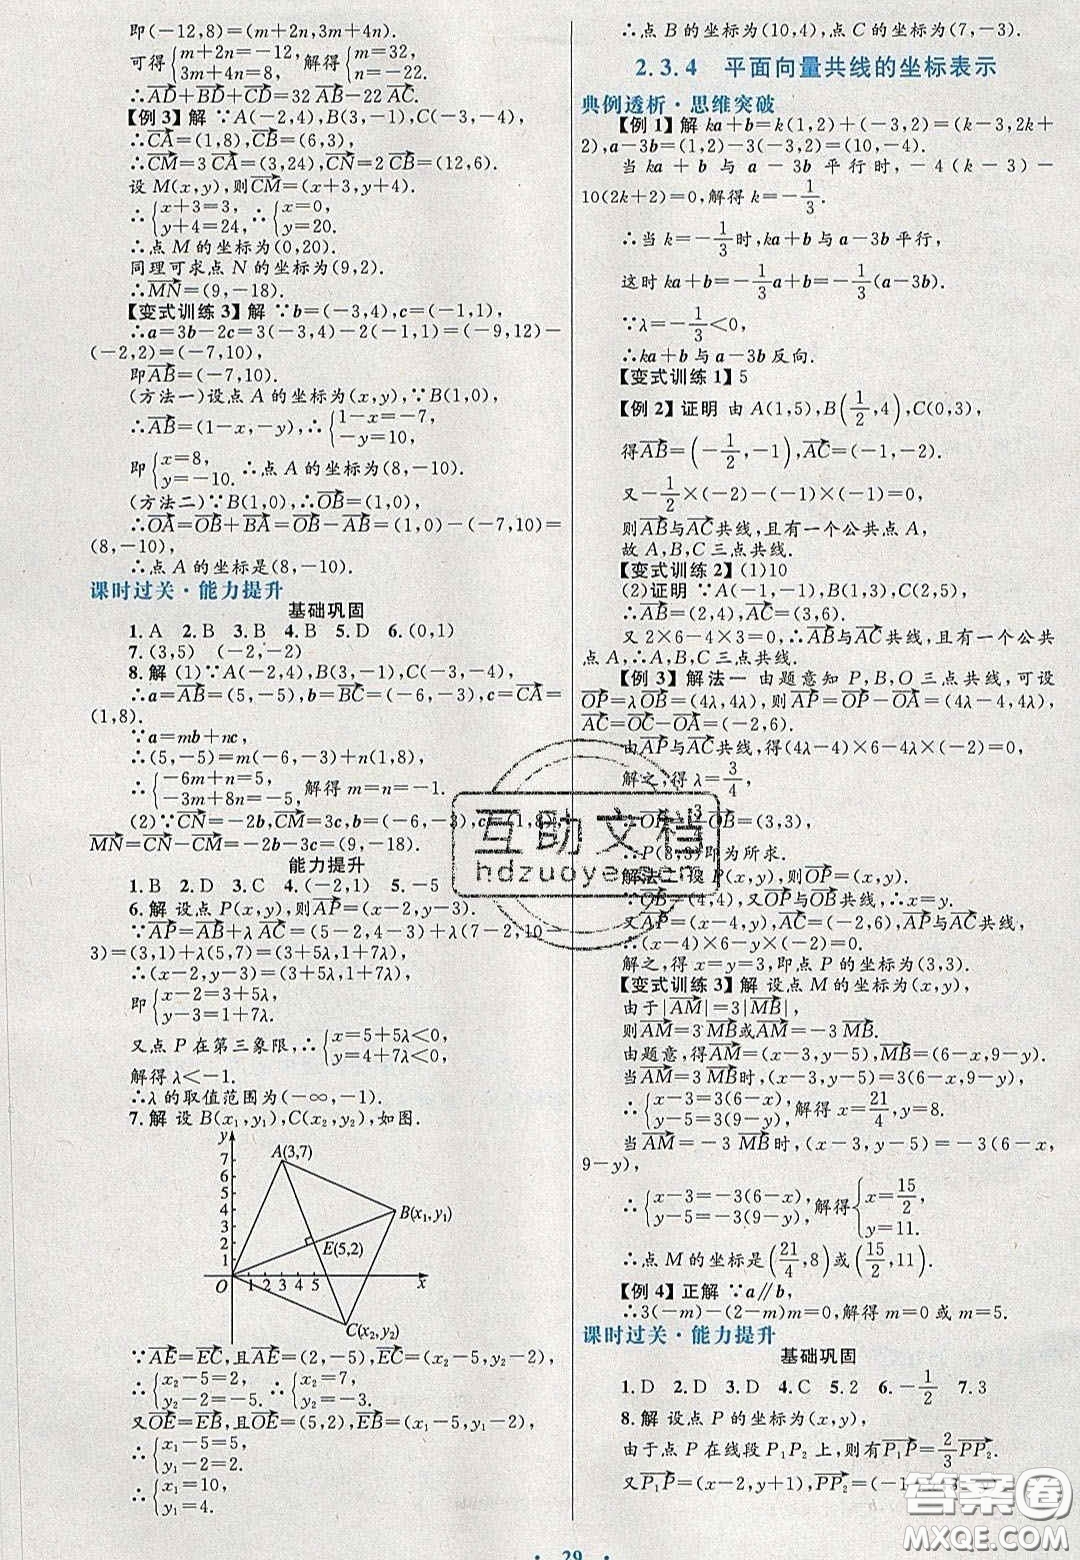 即(−12,8)=(m+2n,3m+4n).
可得{m+2n=−12, 3m+4n=8, 解得{m=32, n=−22.
∴AD+BD+CD=32 AB−22 AC.
【例 3】解 ∵A(−2,4),B(3,−1),C(−3,−4),
∴CA=(1,8),CB=(6,3),
∴CM=3 CA=(3,24),CN=2 CB=(12,6).
设 M(x,y),则CM=(x+3,y+4).
∴{x+3=3, y+4=24, ∴{x=0, y=20.
∴点 M 的坐标为(0,20).
同理可求点 N 的坐标为(9,2).
∴MN=(9,−18).
【变式训练 3】解 ∵b=(−3,4),c=(−1,1),
∴a=3b−2c=3(−3,4)−2(−1,1)=(−9,12)−
(−2,2)=(−7,10),
即AB=(−7,10).
(方法一)设点 A 的坐标为(x,y),∵B(1,0),
∴AB=(1−x,−y), ∴{1−x=−7, −y=10,
即{x=8, y=−10. ∴点 A 的坐标为(8,−10).
(方法二)∵B(1,0),∴OB=(1,0),
∴OA=OB+BA=OB−AB=(1,0)−(−7,10)=
(8,−10),
∴点 A 的坐标是(8,−10).
课时过关·能力提升
基础巩固
1. A 2. B 3. B 4. B 5. D 6. (0,1)
7. (3,5) (−2,−2)
8. 解 (1)∵A(−2,4),B(3,−1),C(−3,−4),
∴a=AB=(5,−5),b=BC=(−6,−3),c=CA=
(1,8).
∵a=mb+nc,
∴(5,−5)=m(−6,−3)+n(1,8).
∴{−6m+n=5, −3m+8n=−5, 解得 m=n=−1.
(2)∵CN=−2b,CM=3c,b=(−6,−3),c=(1,8),
MN=CN−CM=−2b−3c=(9,−18).
能力提升
1. B 2. D 3. C 4. (−2,1) 5. −5
6. 解 设点 P(x,y),则AP=(x−2,y−3).
∵AP=AB+λ AC=(5−2,4−3)+λ(7−2,10−
3)=(3,1)+λ(5,7)=(3+5λ,1+7λ),
∴(x−2,y−3)=(3+5λ,1+7λ).
即{x−2=3+5λ, y−3=1+7λ.
又点 P 在第三象限,∴{x=5+5λ<0, y=4+7λ<0.
解得 λ<−1.
∴λ 的取值范围为(−∞,−1).
7. 解 设 B(x₁,y₁),C(x₂,y₂),如图.
y
7
6
5
4
3
2
1
A(3,7)
B(x₁,y₁)
E(5,2)
O 1 2 3 4 5 x
C(x₂,y₂)
∵AE=EC,且AE=(2,−5),EC=(x₂−5,y₂−2),
∴{x₂−5=2, y₂−2=−5. ∴{x₂=7, y₂=−3.
又OE=EB,且OE=(5,2),EB=(x₁−5,y₁−2),
∴{x₁−5=5, y₁−2=2.
∴{x₁=10, y₁=4.
∴点 B 的坐标为(10,4),点 C 的坐标为(7,−3).
2.3.4 平面向量共线的坐标表示
典例透析·思维突破
【例 1】解 ka+b=k(1,2)+(−3,2)=(k−3,2k+
2),a−3b=(1,2)−3(−3,2)=(10,−4).
当 ka + b 与 a − 3b 平行时, − 4(k − 3) −
10(2k+2)=0,解得 k=−1/3.
∴当 k=−1/3时,ka+b 与 a−3b 平行,
这时 ka+b=−1/3a+b=−1/3(a−3b).
∵λ=−1/3<0,
∴ka+b 与 a−3b 反向.
【变式训练 1】5
【例 2】证明 由 A(1,5),B(1/2,4),C(0,3),
得AB=(−1/2,−1),AC=(−1,−2).
又−1/2×(−2)−(−1)×(−1)=0,
则AB与AC共线,且有一个公共点 A,
故 A,B,C 三点共线.
【变式训练 2】(1)10
(2)证明 ∵A(−1,−1),B(1,3),C(2,5),
∴AB=(2,4),AC=(3,6).
又 2×6−4×3=0,∴AB与AC共线,且有一个公共
点 A,∴A,B,C 三点共线.
【例 3】解法一 由题意知 P,B,O 三点共线,可设
OP=λOB=(4λ,4λ),则AP=OP−OA=(4λ−4,4λ),
AC=OC−OA=(−2,6).
由AP与AC共线,得(4λ−4)×6−4λ×(−2)=0.
解之,得 λ=3/4,
∴OP=3/4OB=(3,3),
∴P(3,3)即为所求.
解法二 设 P(x,y),则OP=(x,y).
∵OB=(4,4),又OP与OB共线,∴x=y.
又AP=(x−4,y),AC=(−2,6),AP与AC共线,
∴(x−4)×6−y×(−2)=0.
解之,得 x=y=3,即点 P 的坐标为(3,3).
【变式训练 3】解 设点 M 的坐标为(x,y),
由于|AM|=3|MB|,
则AM=3 MB或AM=−3 MB.
由题意,得AM=(x−3,y−5),MB=(6−x,9−y).
当AM=3 MB时,(x−3,y−5)=3(6−x,9−y),
∴{x−3=3(6−x), y−5=3(9−y), 解得 x=21/4,y=8.
当AM=−3 MB时,(x−3,y−5)=−3(6−x,
9−y),
∴{x−3=−3(6−x), y−5=−3(9−y), 解得{x=15/2, y=11.
∴点 M 的坐标是(21/4,8)或(15/2,11).
【例 4】正解 ∵a∥b,
∴3(−m)−(2−m)m=0,解得 m=0或 m=5.
课时过关·能力提升
基础巩固
1. D 2. D 3. D 4. C 5. 2 6. −1/2 7. 3
8. 解 设点 P 的坐标为(x,y),
由于点 P 在线段 P₁P₂ 上,则有P₁P=2/3PP₂.
又P₁P=(x−2,y+1),PP₂=(−1−x,
· 29 ·
互助文档
hdzuoye.com
答案圈
MXQE.COM